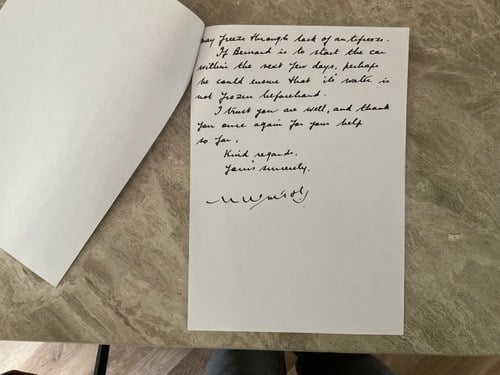 may freeze through lack of antifreeze.
If Bernard is to start the car
within the next few days, perhaps
he could ensure that its water is
not frozen beforehand.
I trust you are well, and thank
you once again for your help
so far.
Kind regards.
Yours sincerely.